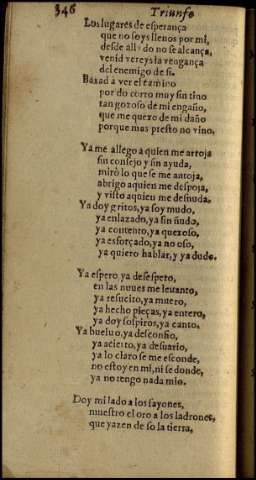 346 Triunfo
Los lugares de esperança
que no soys llenos por mi,
desde alli do no se alcança,
venid vereys la vengança
del enemigo de si.
Baxad a ver el camino
por do corro muy sin tino
tan gozoso de mi engaño,
que me quexo de mi daño
porque mas presto no vino.
Ya me allego a quien me arroja
sin consejo y sin ayuda,
mirò lo que se me antoja,
abrigo aquien me despoja,
y visto aquien me desnuda.
Ya doy gritos, ya soy mudo,
ya enlazado, ya sin ñudo,
ya contento, ya quexoso,
ya esforçado, ya no oso,
ya quiero hablar, y ya dudo.
Ya espero, ya desespero,
en las nuues me leuanto,
ya resucito, ya muero,
ya hecho pieças, ya entero,
ya doy sospiros, ya canto.
Ya bueluo, ya desconfio,
ya acierto, ya desuario,
ya lo claro se me esconde,
no estoy en mi, ni se donde,
ya no tengo nada mio.
Doy mi lado a los sayones,
muestro el oro a los ladrones,
que yazen de so la tierra,